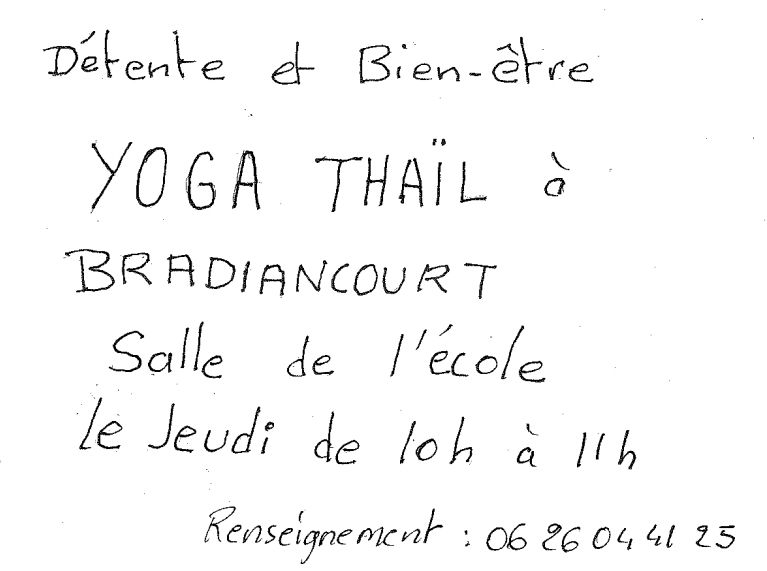 Détente et Bien-être
YOGA THAÏL à
BRADIANCOURT
Salle de l'école
le Jeudi de 10h à 11h
Renseignement : 06 26 04 41 25